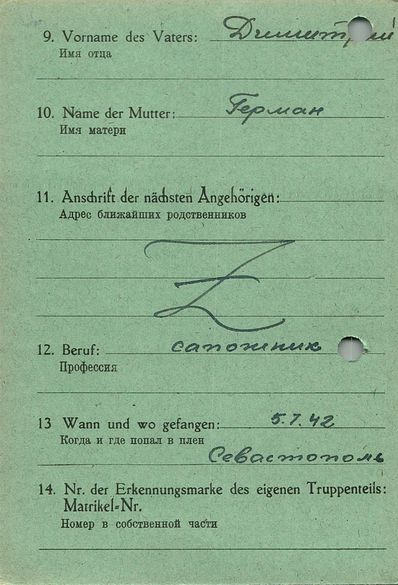 9. Vorname des Vaters: Димитрий
Имя отца
10. Name der Mutter: Герман
Имя матери
11. Anschrift der nächsten Angehörigen:
Адрес ближайших родственников
12. Beruf: сапожник
Профессия
13 Wann und wo gefangen: 5.7.42
Когда и где попал в плен
Севастополь
14. Nr. der Erkennungsmarke des eigenen Truppenteils:
Matrikel=Nr.
Номер в собственной части